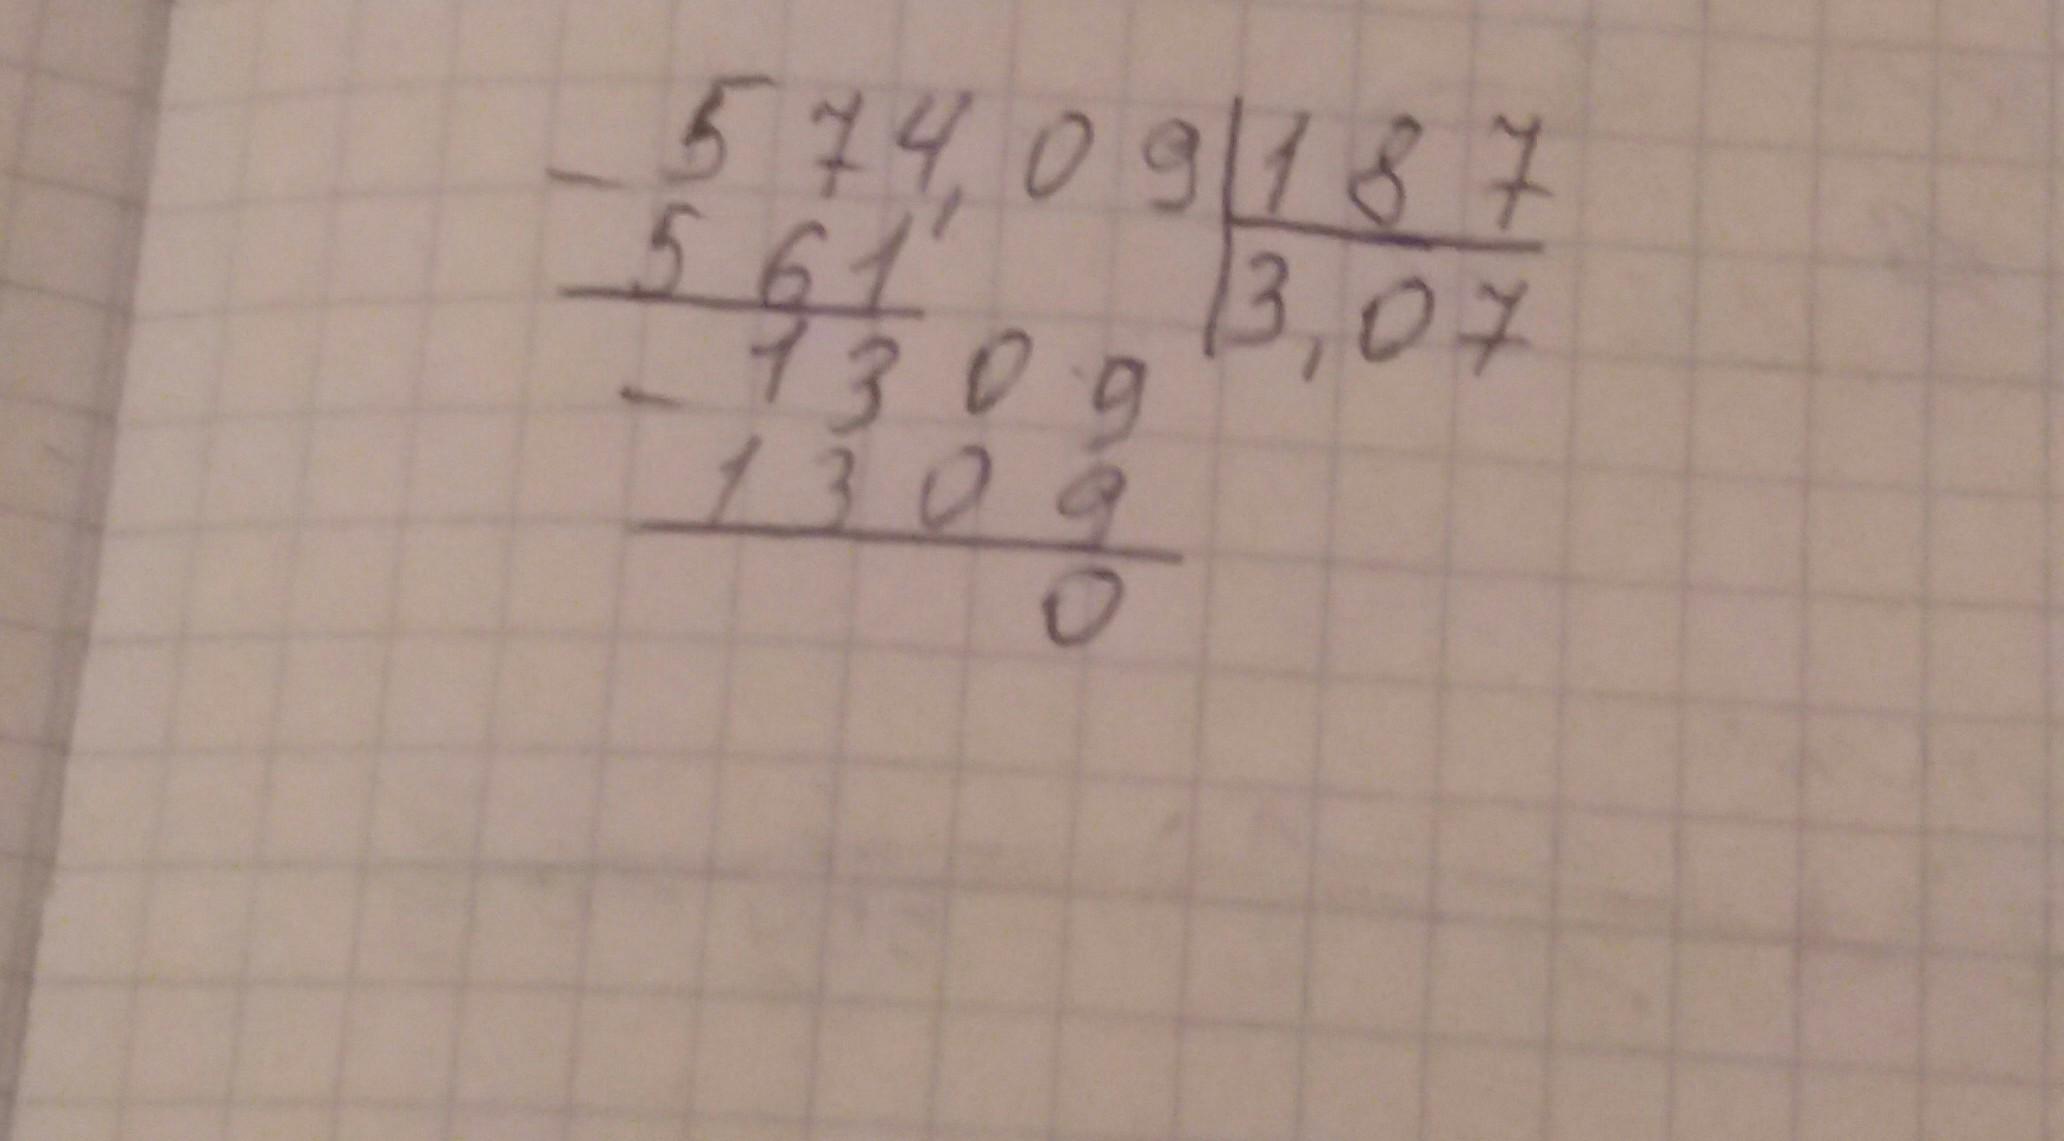 - 574,09 | 187
561 | 3,07
- 1309
1309
0